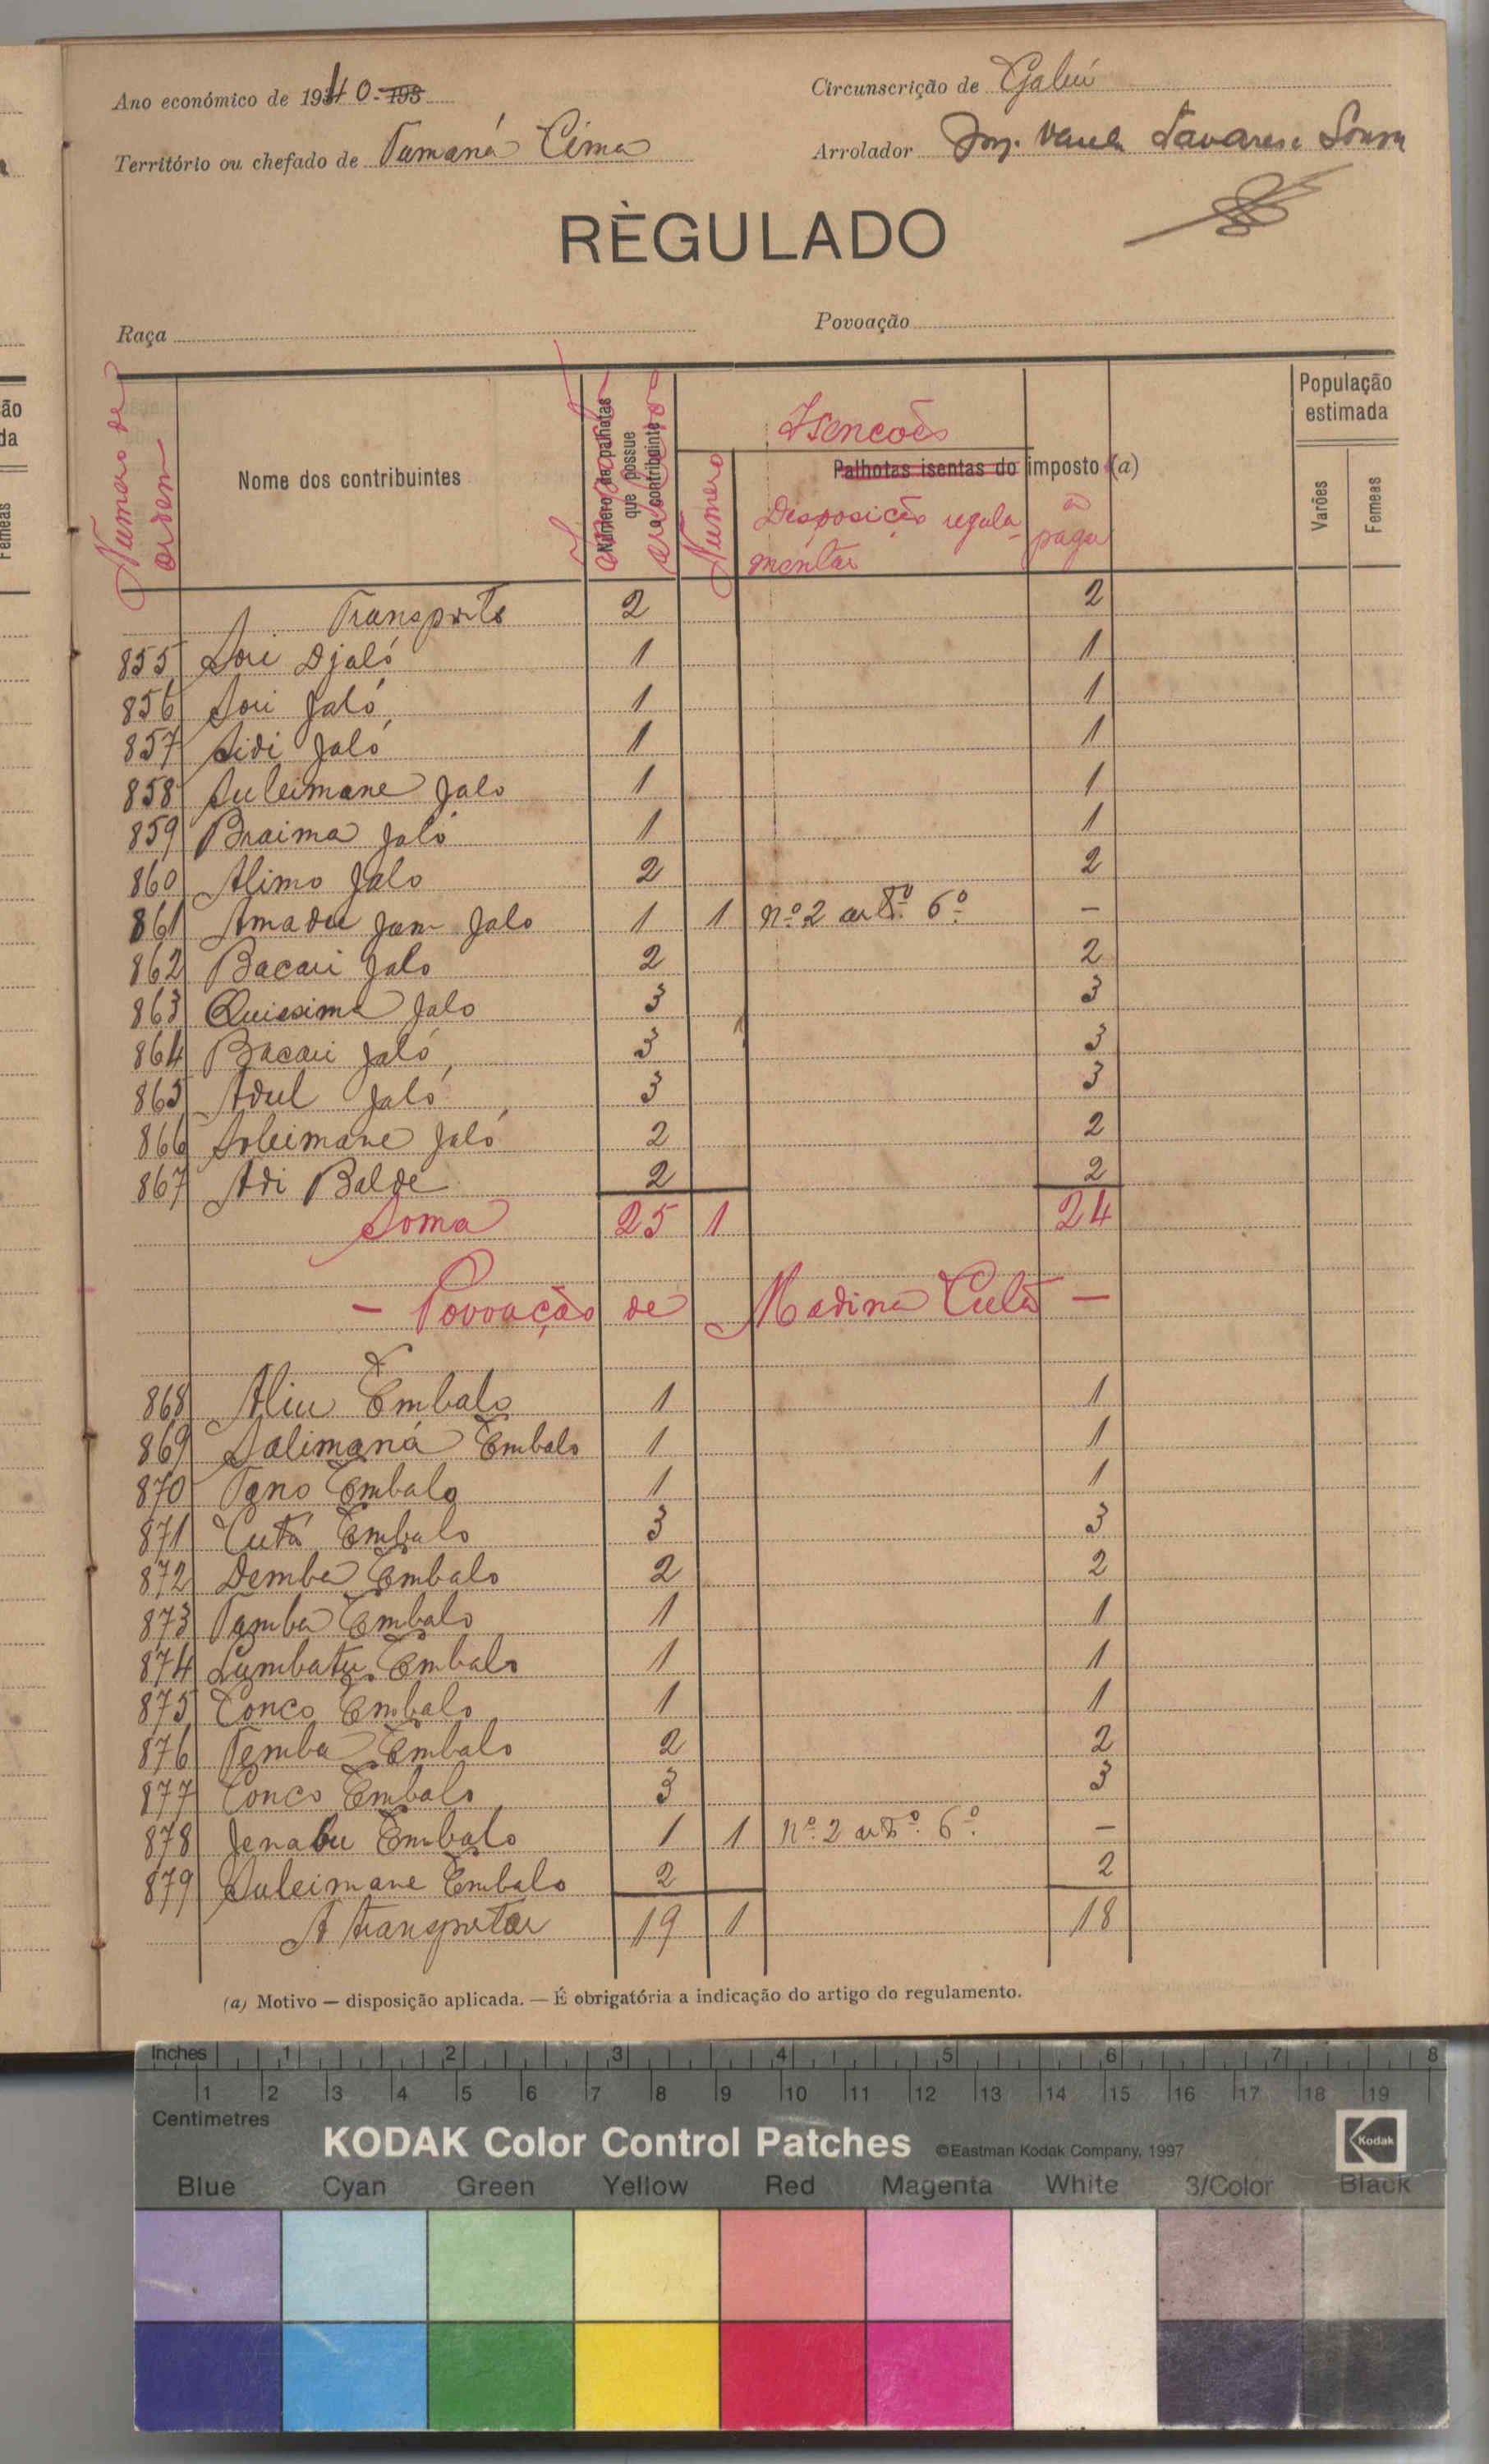 Ano económico de 1940-193
Circunscrição de Gabú
Território ou chefado de Tumaná Cima
Arrolador Tavares e Sousa
RÈGULADO
Raça
Povoação
Numero de ordem
Nome dos contribuintes
Número de palhotas que possue o contribuinte
Isencoēs
Numero
Palhotas isentas do imposto (a)
Disposição regulamentar
a pagar
População estimada
Varões
Femeas
Transporte 2 2
855 Sori Djaló 1 1
856 Sori Jaló 1 1
857 Sidi Jaló 1 1
858 Suleimane Jalo 1 1
859 Braima Jaló 1 1
860 Alimo Jalo 2 2
861 Amadu Jam Jalo 1 1 nº 2 artº. 6º. –
862 Bacari Jalo 2 2
863 Quissima Jalo 3 3
864 Bacari Jaló 3 3
865 Adul Jaló 3 3
866 Soleimane Jaló 2 2
867 Adi Balde 2 2
Soma 25 1 24
– Povoação de Madina Cutá –
868 Aliu Embalo 1 1
869 Salimaná Embalo 1 1
870 Pano Embalo 1 1
871 Cutá Embalo 3 3
872 Demba Embalo 2 2
873 Pamba Embalo 1 1
874 Lumbatu Embalo 1 1
875 Conco Embalo 1 1
876 Pemba Embalo 2 2
877 Conco Embalo 3 3
878 Jenabu Embalo 1 1 nº. 2 artº. 6º. –
879 Suleimane Embalo 2 2
A transportar 19 1 18
(a) Motivo — disposição aplicada. — É obrigatória a indicação do artigo do regulamento.
Inches 1 2 3 4 5 6 7 8
1 2 3 4 5 6 7 8 9 10 11 12 13 14 15 16 17 18 19
Centimetres
KODAK Color Control Patches ©Eastman Kodak Company, 1997 Kodak
Blue Cyan Green Yellow Red Magenta White 3/Color Black